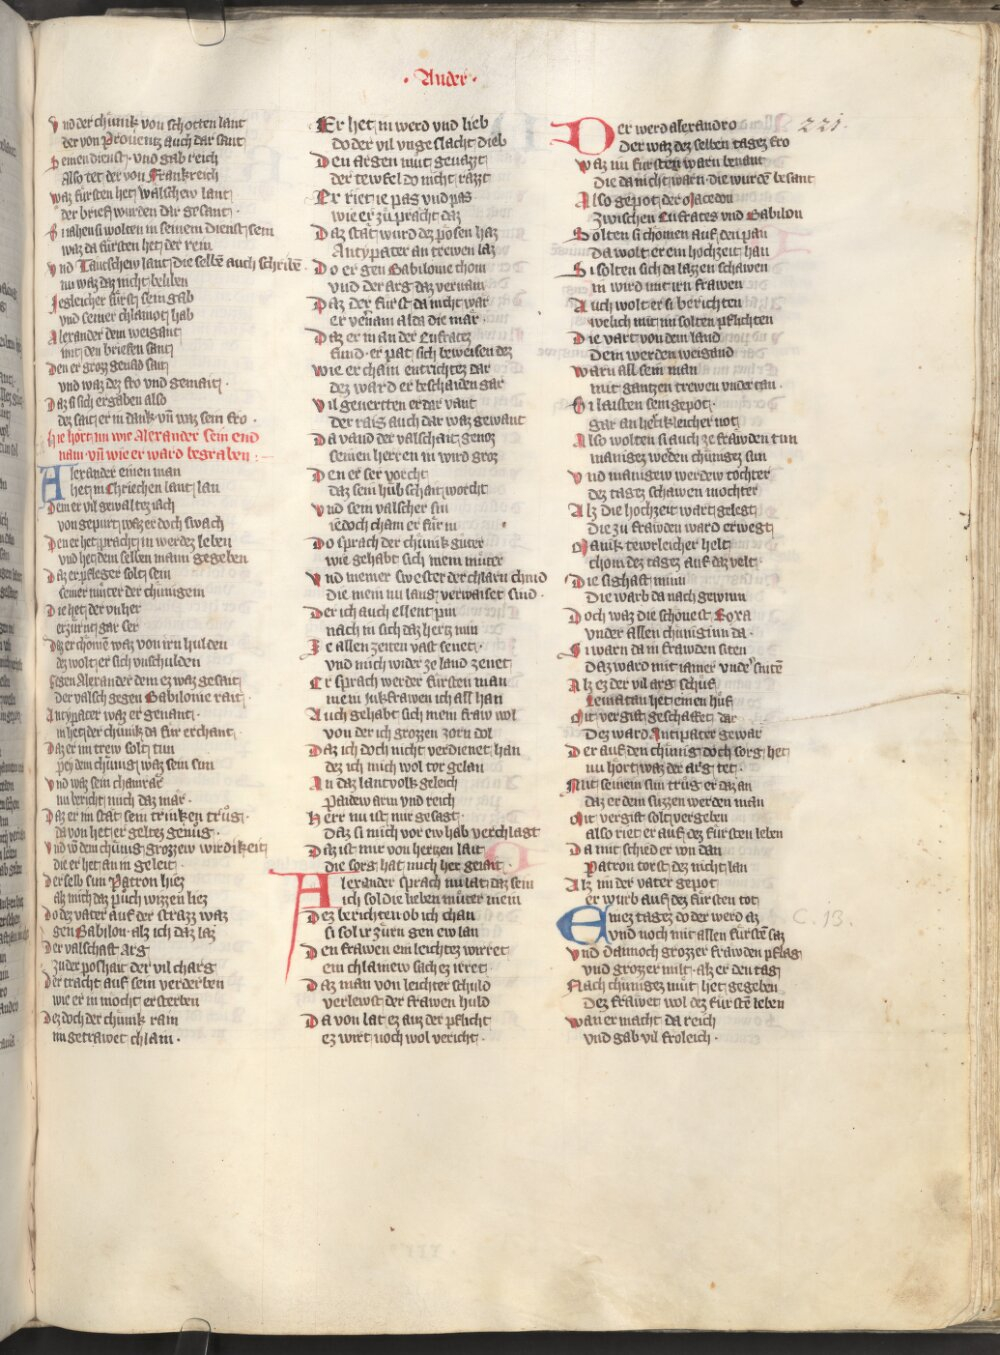 · Ander ·
Vnd der chünik von schotten lant
der von Prouentz auch dar sant
Seinen dienst · vnd gab reich
Also tet der von Frankreich
Waz fürsten het walischew lant
der brief wurden dar gesant ·
Si iahen si wolten in seinem dienst sein
waz da fürsten het der rein
Vnd Tautschew lant die selbē auch schribē
nu waz daz nicht beliben
Iegleicher fürst sein gab
vnd seiner chlainot hab
Alexander dem weigant
mit den briefen sant
Den er groz genad sait
vnd waz dez fro vnd gemait ·
Daz si sich ergaben also
dez sait er in dank vn̄ waz sein fro ·
hie hört nu wie Alexander sein end
nam · vn̄ wie er ward begraben : ~
Alexander einen man
het in Chriechen lant lan
Dem er vil gewaltez iach
von gepurt waz er doch swach
Den er het pracht in werdez leben
vnd het dem selben mann gegeben
Daz er pfleger solt sein
seiner müter der chünigein
Die het der vnher
erzürnt gar ser
Dez er chomē waz von irn hulden
dez wolt er sich vnschulden
Gegen Alexander dem ez waz gesait
Der valsch gegen Babilonie rait ·
Antypater waz er genant ·
in het der chünik da für erchant
Daz er im trew solt tun
pey dem chünig waz sein sun
Vnd waz sein chamrār
nu bericht mich daz mär ·
Daz er im stat sein trinken trüg ·
da von het er geltez genüg ·
Vnd vō dem chünig grozzew wirdikeit
die er het an im geleit ·
Der selb sun Patron hiez
alz mich daz püch wizzen liez
Do dez vater auf der strazz waz
gen Babilon · alz ich daz laz
Der valschaft arg
zu der poshait der vil charg
Der tracht auf sein verderben
wie er in möcht ersterben
Dez doch der chünik rain
im getrawet chlain ·
Er het in werd vnd lieb
do der vil vngeslacht dieb
Den argen müt genazzt
der tewfel do nicht razzt
Er riet ie pas vnd pas
wie er zü pracht daz
Daz stät wurd dez posen haz
Antypater an trewen laz
Do er gen Babilonie chom
vnd der arg daz vernam
Daz der fürst da nicht war
er vernam alda die mär ·
Daz er in an der Eufratez
fund · er pat sich beweisen dez
Wie er chäm entrichtez dar
dez ward er beschaiden gar
Vil genercten er dar vant
der rais auch dar waz gewant
Da vand der valschait genoz
seinen herren in wird groz
Den er ser vorcht
daz sein hübschait worcht
Vnd sein valscher sin
iedoch cham er für in
Do sprach der chünik güter
wie gehabt sich mein müter
Vnd meiner swester der chlarn chind
die mein nu lang verwaiset sind ·
Der ich auch ellent pin
nach in sich daz hertz min
Ie allen zeiten vast senet ·
vnd mich wider ze land zenet
Er sprach werder fürsten man
mein jukfrawen ich all han
Auch gehabt sich mein fraw wol
von der ich grozzen zorn dol
Daz ich doch nicht verdienet han
dez ich mich wol tor gelan
An daz lantvolk geleich
paidew arm vnd reich
Herr nu ist mir gesagt ·
Daz si mich vor ew hab verchlagt
Daz ist mir von hertzen lait
die sorg hat mich her geiait ·
Alexander sprach nu lat daz sein
ich sol die lieben müter mein
Dez berichten ob ich chan
si sol ir zürn gen ew lan
Den frawen ein leichtez wirret
ein chlainew sach ez irret ·
Daz man von leichter schuld
verlewst der frawen huld
Da von lat ez auz der pflicht
ez wirt noch wol vericht ·
Der werd alexandro
Der waz dez selben tagez fro
Waz nu fürsten warn benant
Die da nicht warn · die wurdē besant
Also gepot der Macedon
Zwischen Eufrates vnd Babilon
Solten si chömen auf den plan
Da wolt er ein hochzeit han
Si solten sich da lazzen schawen
in wird mit irn frawen
Auch wolt er si berichten
welich müt im solten pflichten
Die vart von dem land
Dem werden weigand
Warn all sein man
mit gantzen trewen vndertan ·
Si laisten sein gepot ·
gar an herzkleicher not
Also wolten si auch ze frawden tun
manigez werden chünigez sun
Vnd manigew werdew tochter
dez tagez schawen mochter
Alz die hochzeit wart gelegt
die zu frawden ward erwegt
Manik tewrleicher helt
chom dez tagez auf daz velt ·
Die sighaft minn
Die warb da nach gewinn
Doch waz die schönest Roxa
vnder allen chünigiun da ·
Si warn da in frawden siten
Daz ward mit iamer vnderˢ snitē
Alz ez der vil arg schüf
Leinatan het einen hüf
Mit vergift geschaffet dar
Dez ward Antipater gewar
Der auf den chünig doch sorg het
nu hort waz der arg tet ·
Mit seinem sun trüg er daz an
daz er dem suzzen werden man
Mit vergift solt vergeben
also riet er auf dez fürsten leben
Da mit schied er von dan
Patron torst dez nicht lan
Alz im der vater gepot
er wurb auf dez fürsten tot
Einez tagez do der werd az
vnd noch mit allen fürstē saz
Vnd dannoch grozzer frawden pflag
vnd grozzer milt · alz er den tag
Nach chünigez müt het gegeben
Dez frawet wol dez fürstē leben
Wan er macht da reich
vnd gab vil froleich ·
221.
C. 13.